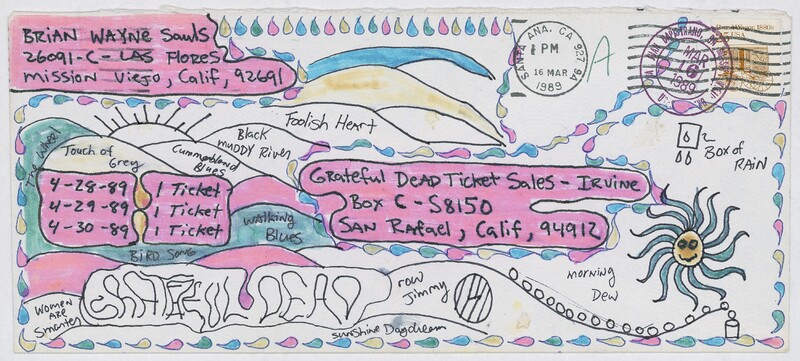 BRIAN WAYNE Sauls
26091-C- LAS FLORES
MISSION VIEJO, CALIF, 92691
SANTA ANA, CA 927 94
PM
16 MAR
1989
A
MAR
16
1989
USA
Foolish Heart
Black
MUDDY River
Cummberland
Blues
Touch of
Grey
The Wheel
4-28-89 1 Ticket
4-29-89 1 Ticket
4-30-89 1 Ticket
GRATEFUL DEAD Ticket SALES - IRVINE
BOX C-S8150
SAN RAFAEL, CALIF, 94912
Box of
RAIN
Walking
Blues
BIRD SONG
GRATEFUL DEAD
Row
Jimmy
morning
Dew
Women
ARE
Smarter
Sunshine Daydream